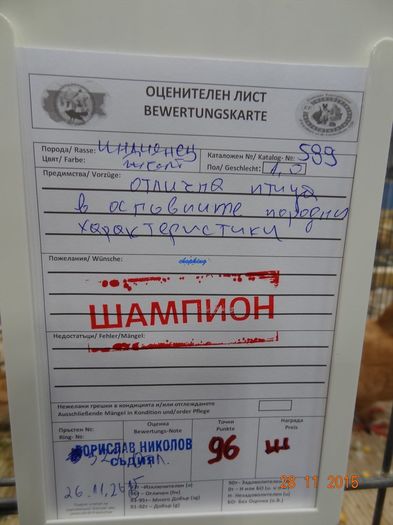 ОЦЕНИТЕЛЕН ЛИСТ
BEWERTUNGSKARTE
Порода/ Rasse: индианец Каталожен №/ Katalog- №: 599
Цвят/ Farbe: Пол/ Geschlecht: 1,0
Предимства/ Vorzüge:
отлична птица
в основните породни
характеристики
Пожелания/ Wünsche:
ШАМПИОН
Недостатъци/ Fehler/Mängel:
Нежелани грешки в кондицията и/или отглеждането
Ausschließende Mängel in Kondition und/order Pflege
Пръстен №: Оценка Точки Награда
Ring- №: Bewertungs-Note Punkte Preis
БОРИСЛАВ НИКОЛОВ 96 Ш
СЪДИЯ
26.11.2015
28 11 2015